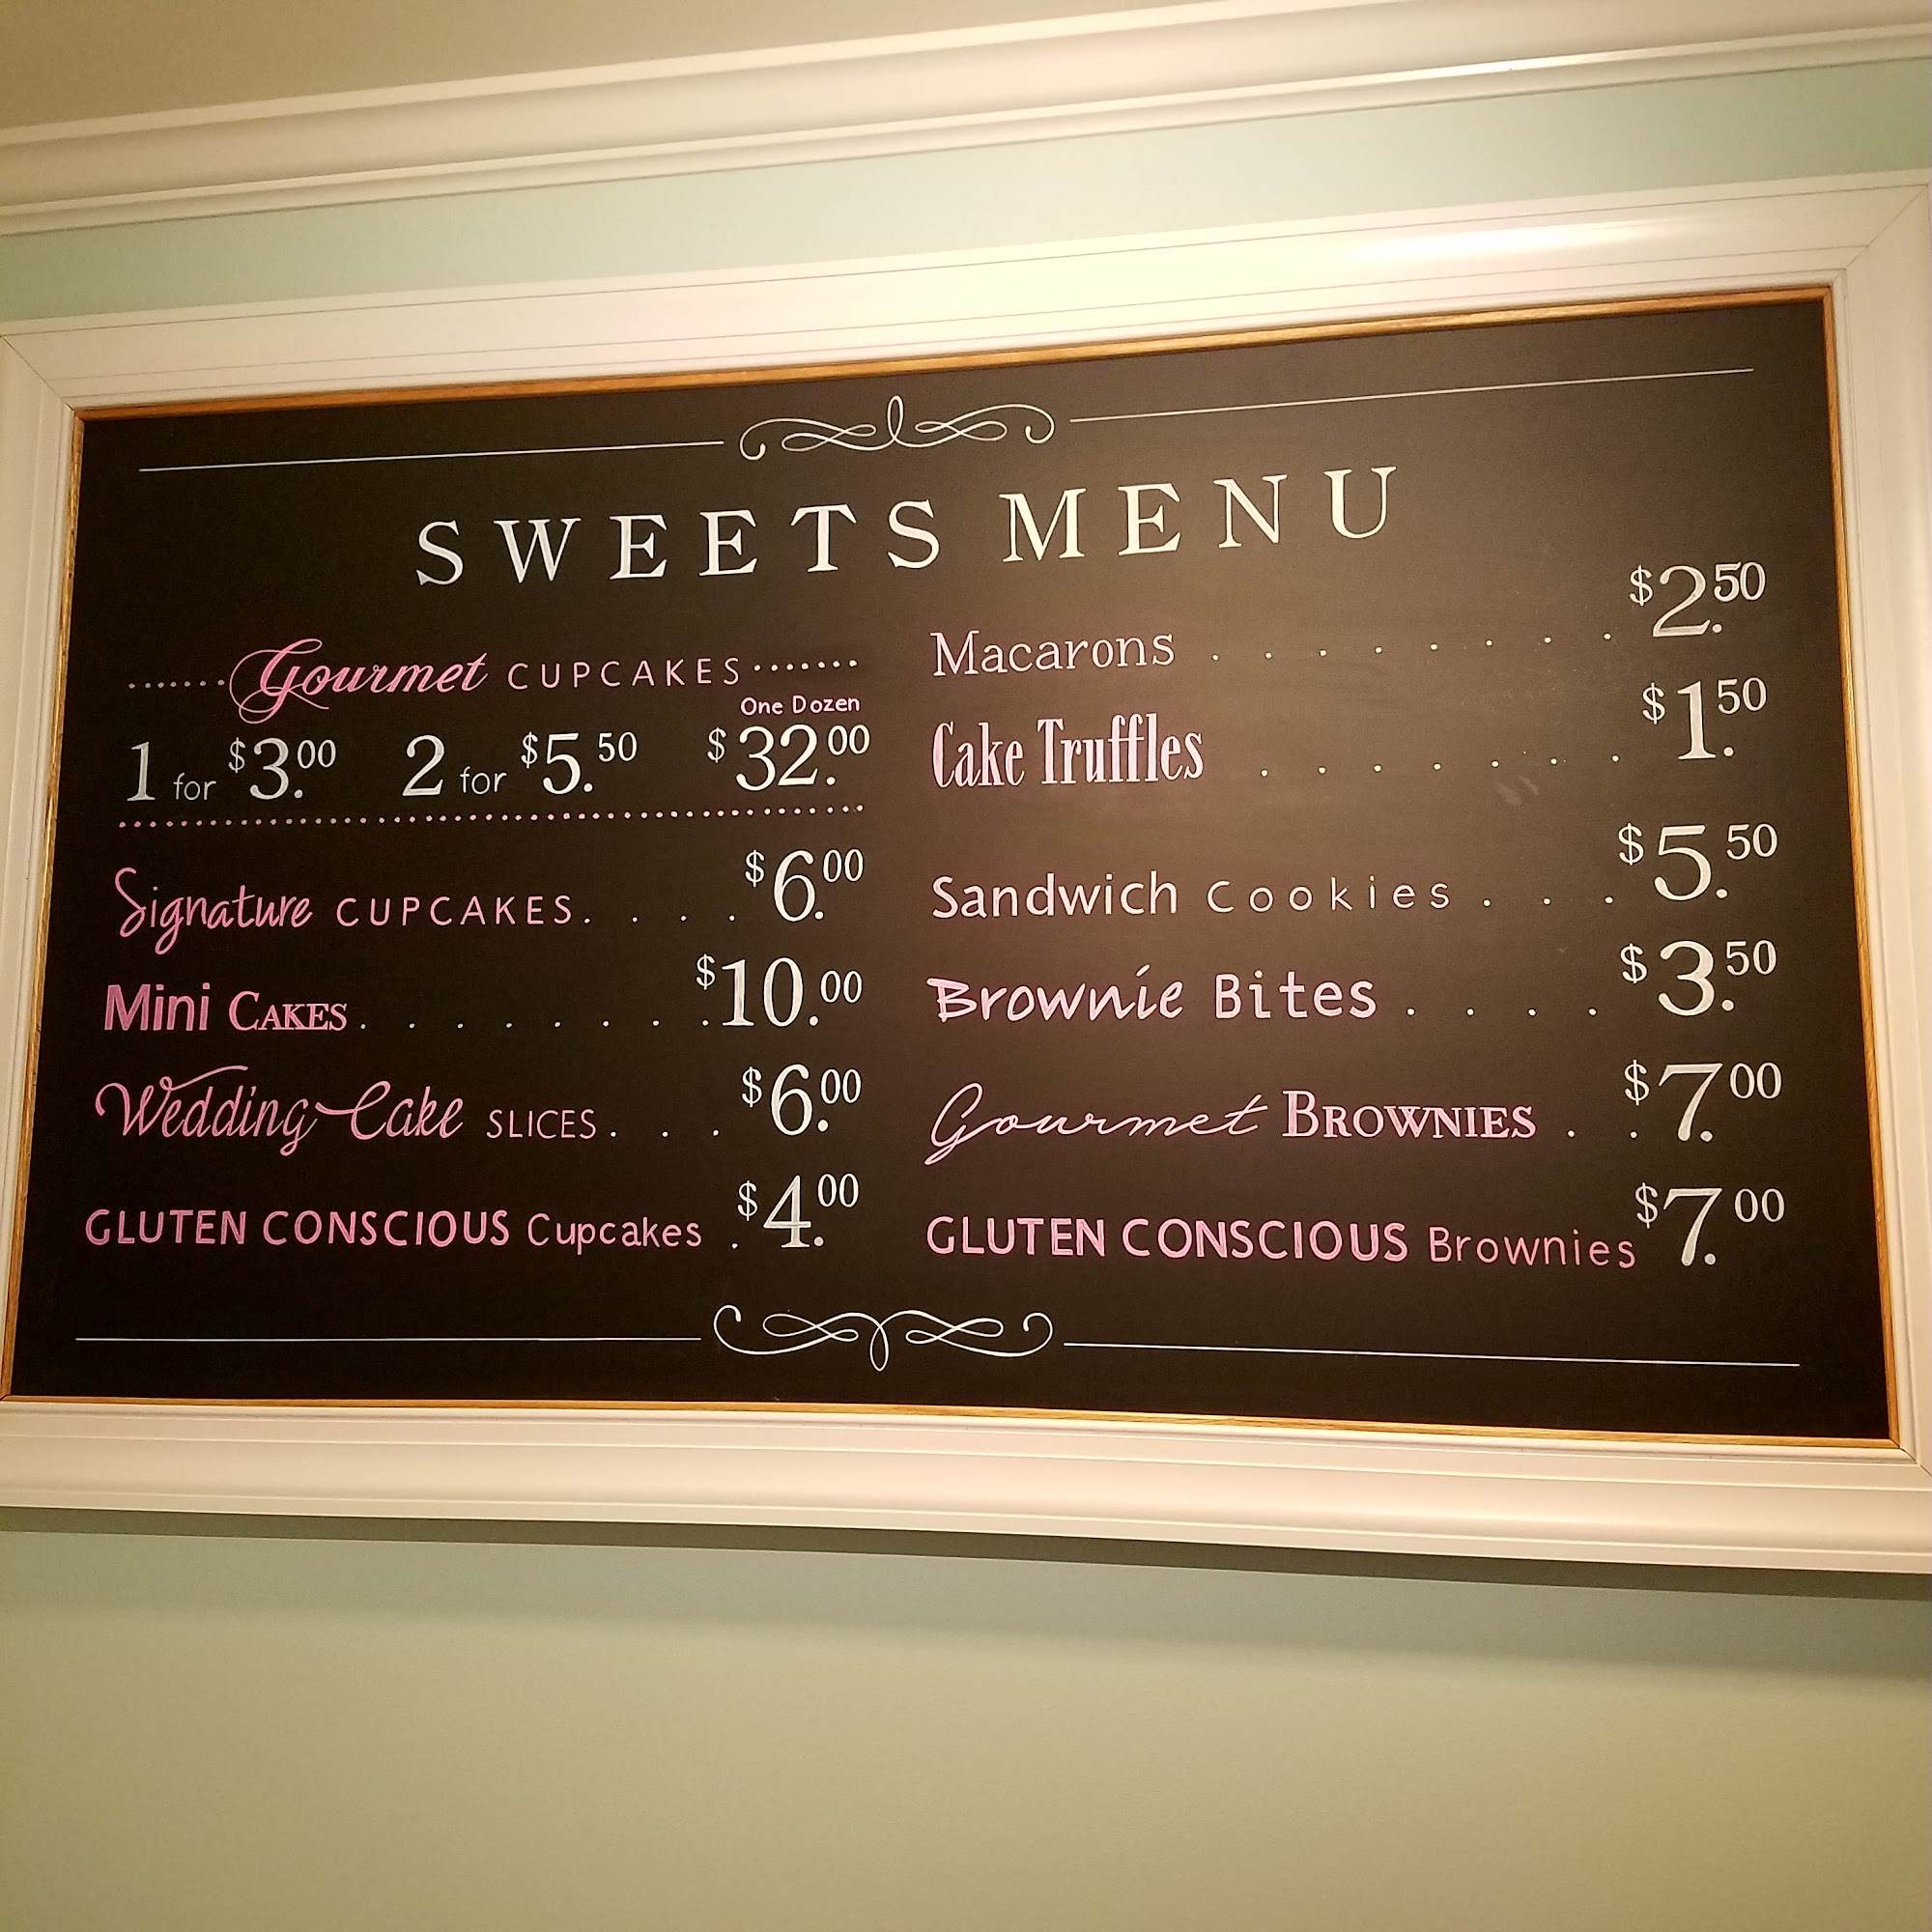 SWEETS MENU
Gourmet CUPCAKES
One Dozen
1 for $3.00 2 for $5.50 $32.00
Signature CUPCAKES. . . . $6.00
Mini CAKES. . . . . . . .$10.00
Wedding Cake SLICES. . . $6.00
GLUTEN CONSCIOUS Cupcakes . $4.00
Macarons . . . . . . . . $2.50
Cake Truffles . . . . . . . $1.50
Sandwich Cookies . . . $5.50
Brownie Bites . . . . $3.50
Gourmet BROWNIES . . $7.00
GLUTEN CONSCIOUS Brownies $7.00